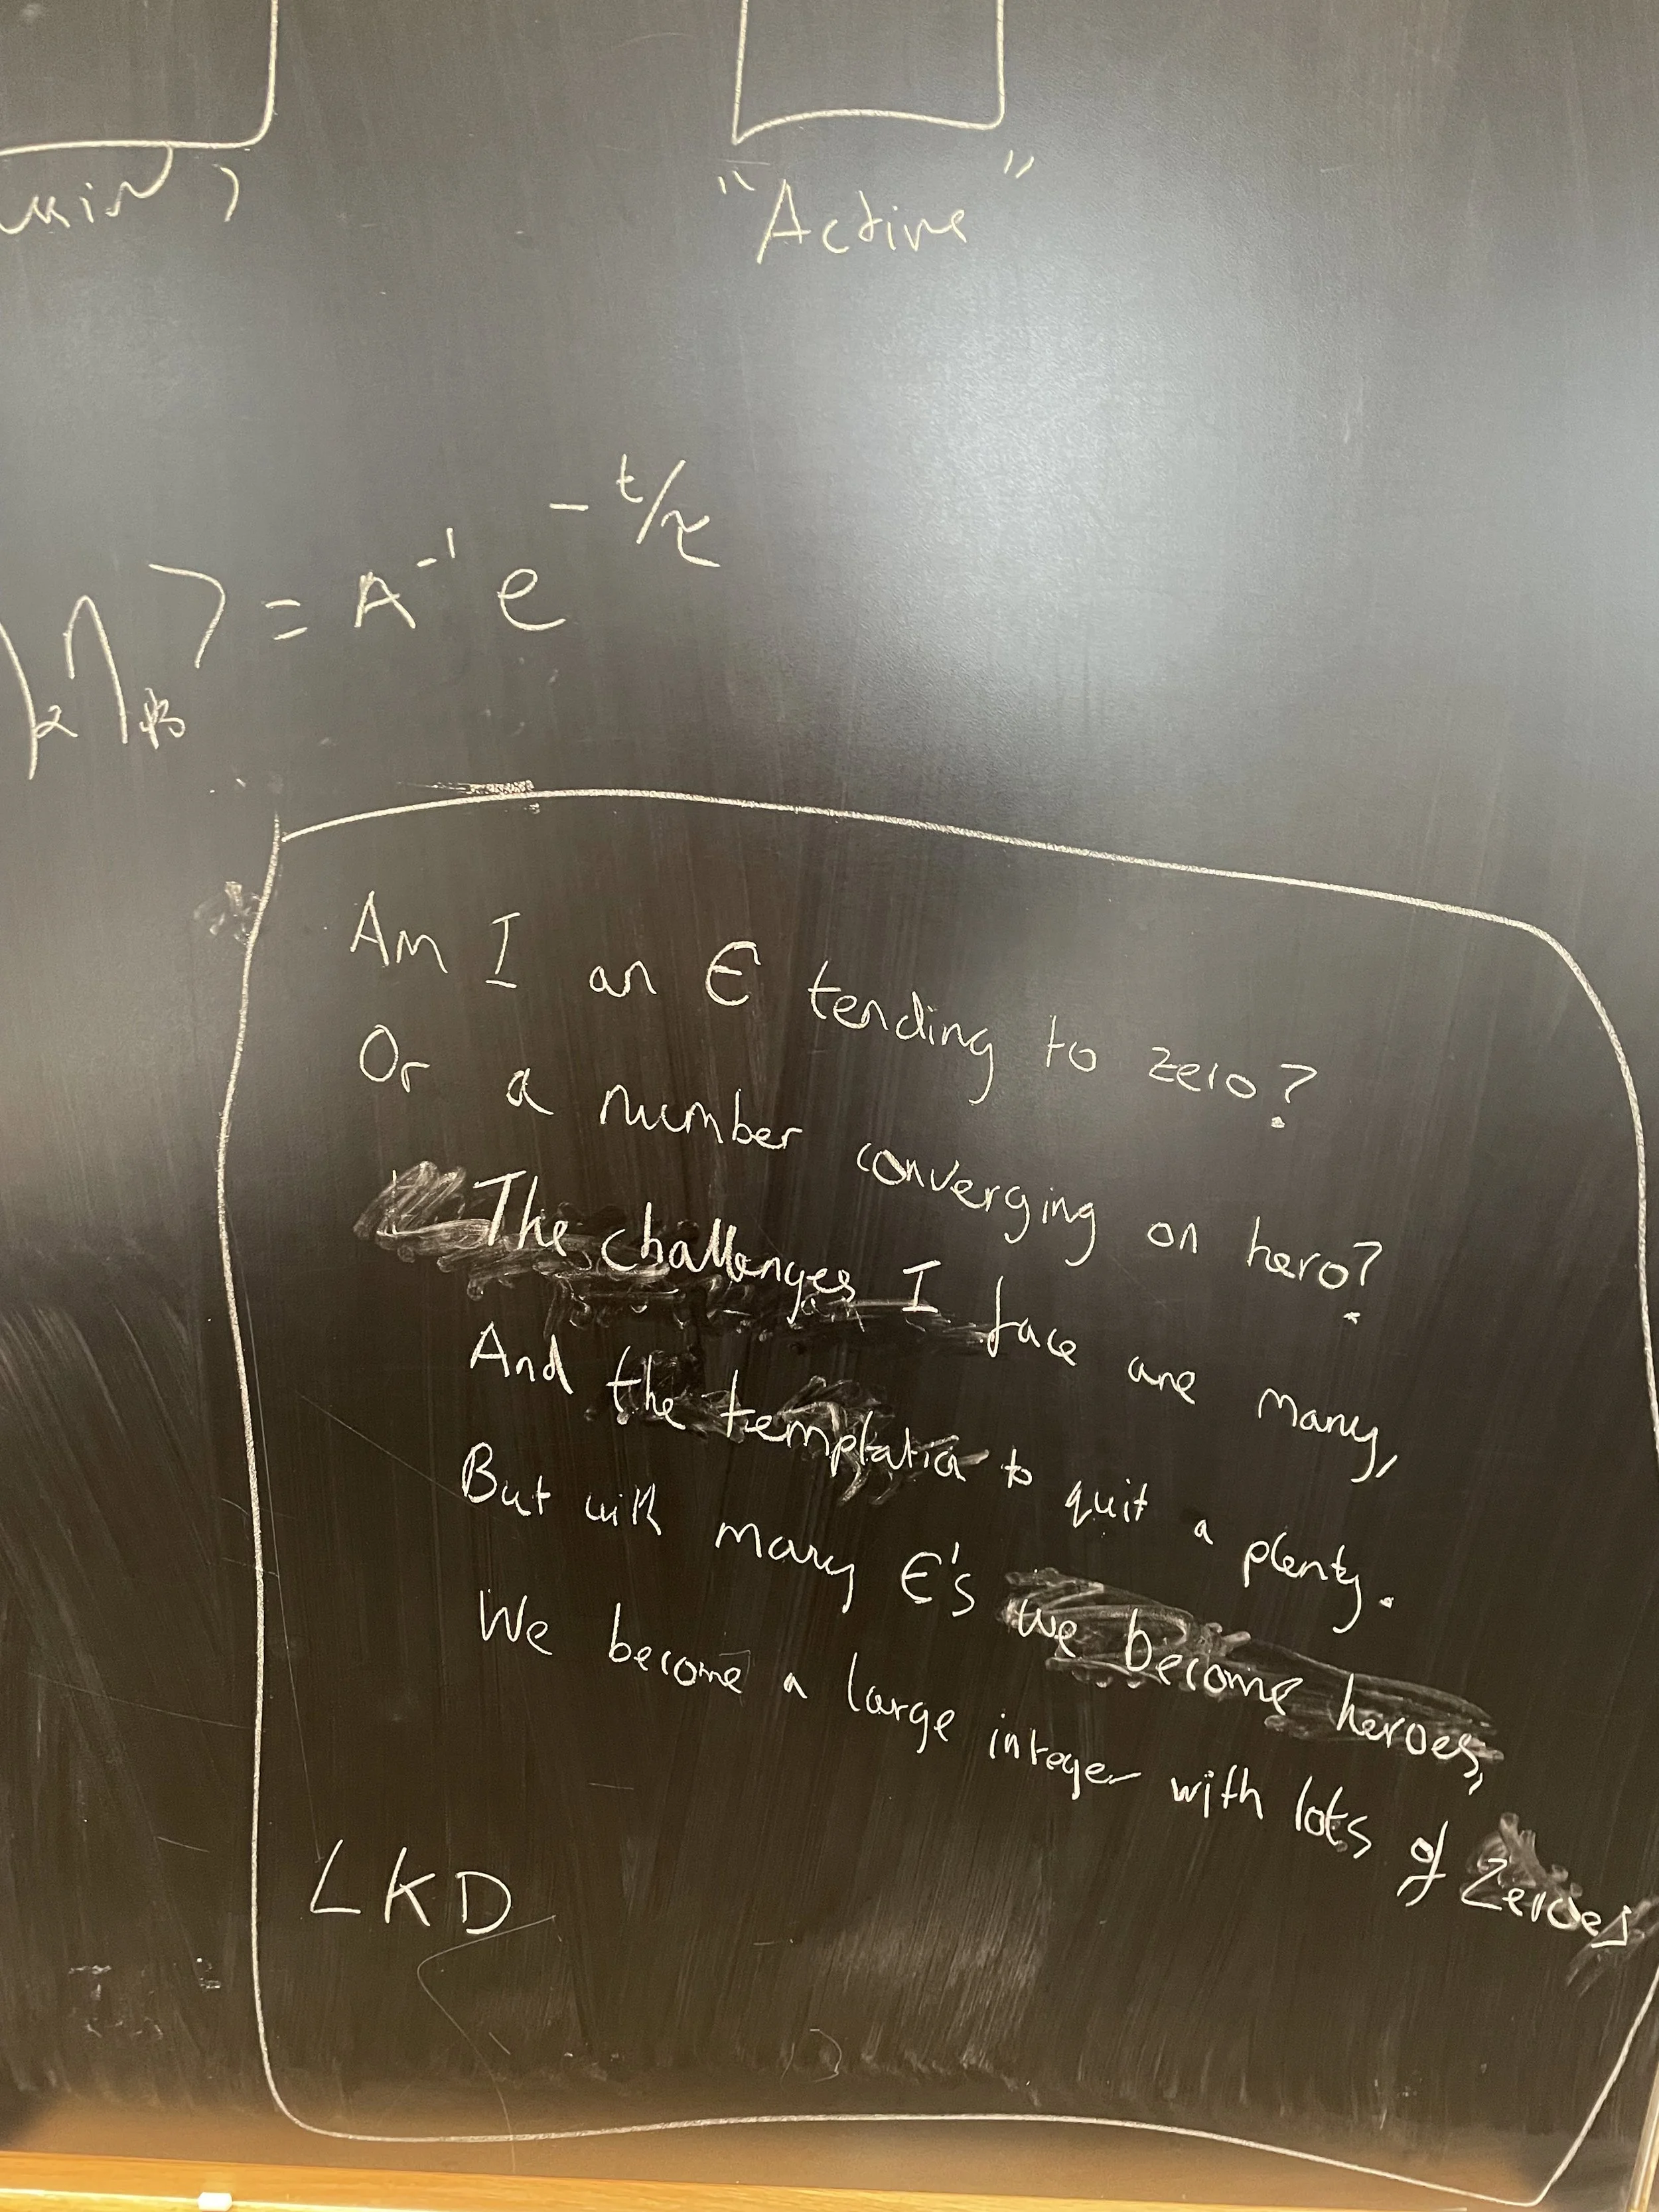 "Active"
= A⁻¹ e^{-t/τ}
Am I an ϵ tending to zero?
Or a number converging on hero?
The challenges I face are many,
And the temptation to quit a plenty.
But with many ϵ's we become heroes,
We become a large integer with lots of zeroes
LKD